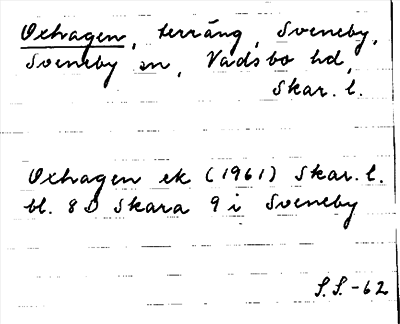 Oxhagen, terräng, Sveneby,
Sveneby sn, Vadsbo hd,
Skar. l.
Oxhagen ek (1961) Skar. l.
bl. 8D Skara 9i Sveneby
S.S.-62